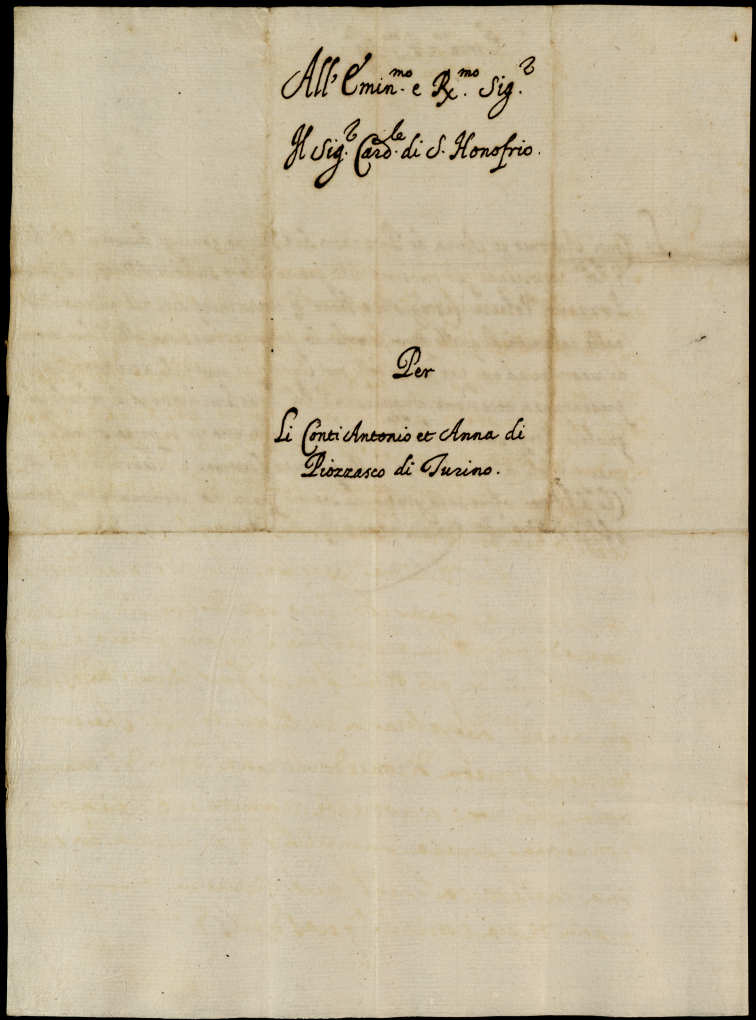 All' Emin.mo e Rx.mo Sig.r
Il Sig.r Card.le di S. Honofrio.
Per
Li Conti Antonio et Anna di
Piozzasco di Turino.